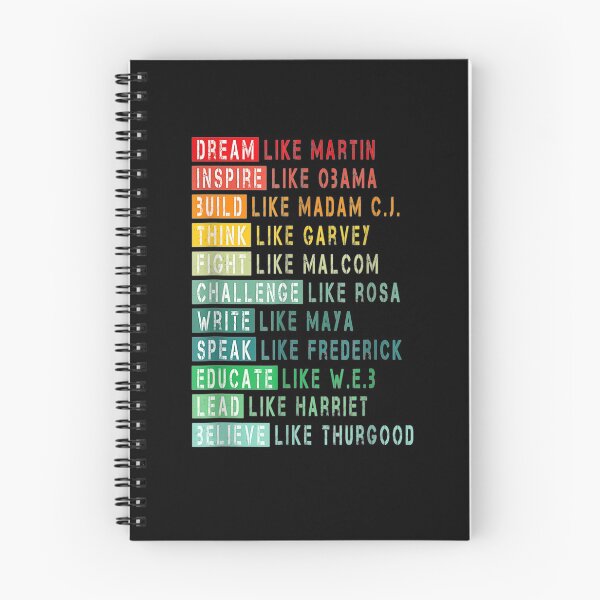 DREAM LIKE MARTIN
INSPIRE LIKE OBAMA
BUILD LIKE MADAM C.J.
THINK LIKE GARVEY
FIGHT LIKE MALCOM
CHALLENGE LIKE ROSA
WRITE LIKE MAYA
SPEAK LIKE FREDERICK
EDUCATE LIKE W.E.B
LEAD LIKE HARRIET
BELIEVE LIKE THURGOOD